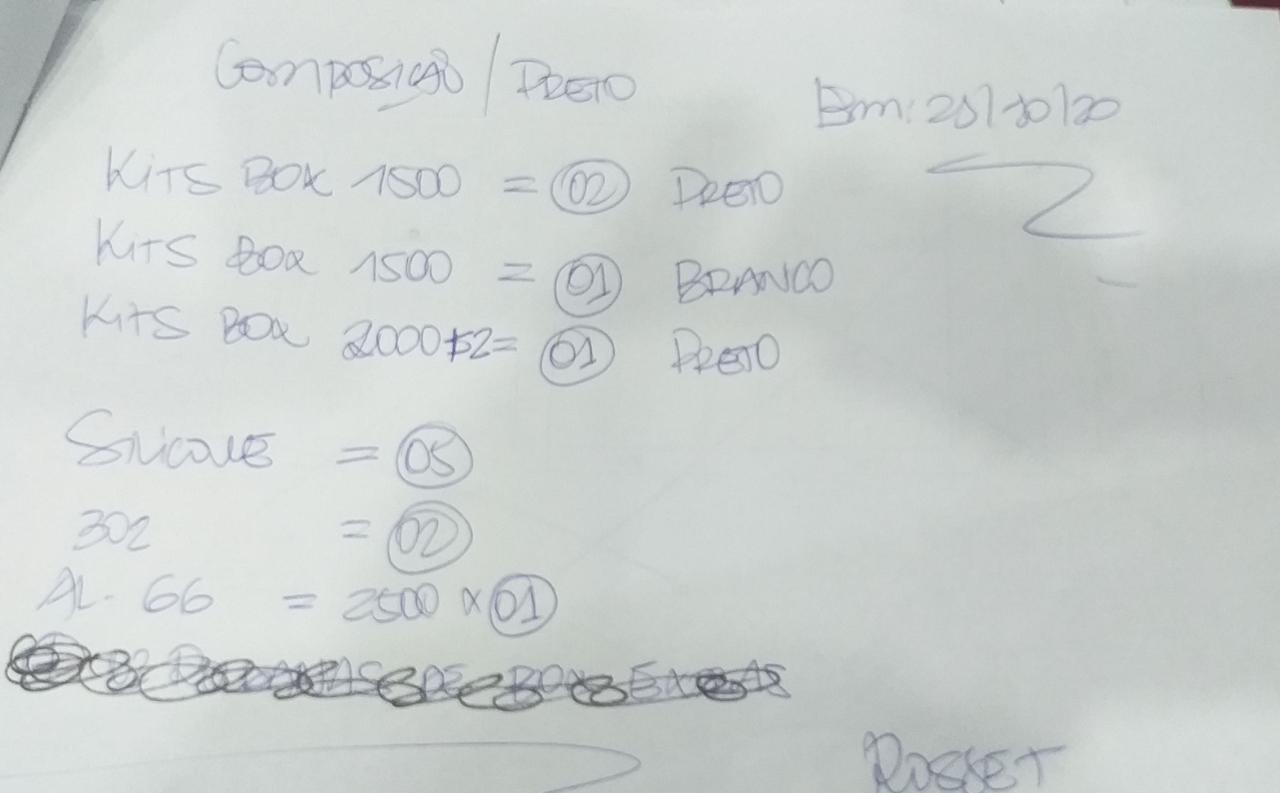 Composição / PRETO
Em: 28/10/20
KiTS BOX 1500 = 02 PRETO
KiTS BOX 1500 = 01 BRANCO
KiTS BOX 2000 = 01 PRETO
SiliCONE = 05
302 = 02
AL. 66 = 2500 x 01
ROSSET